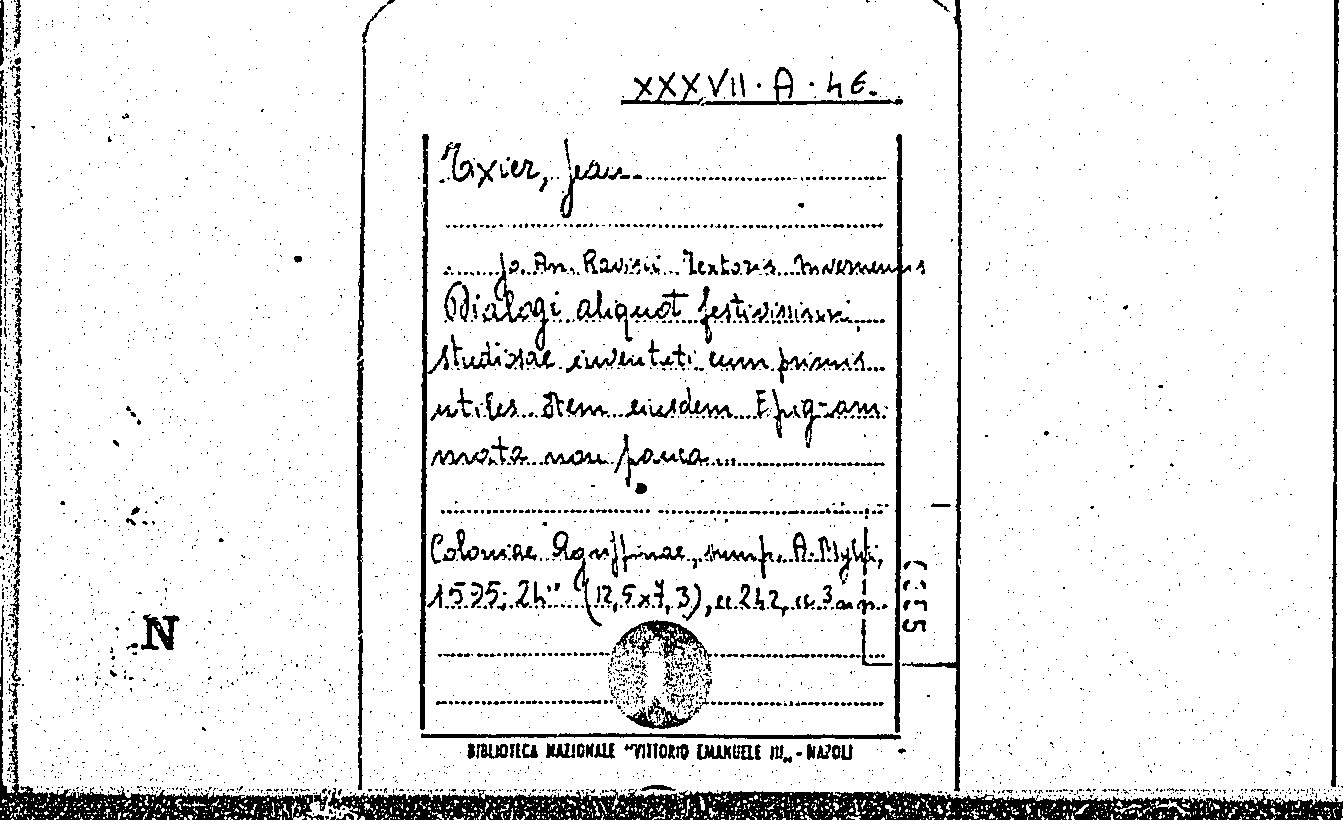 XXXVII. A. 46.
Tixier, Jean
Jo. An. Ravisii Textoris Nivernensis
Dialogi aliquot festivissimi,
studiosae iuventuti cum primis
utiles Item eiusdem Epigram
mata non pauca...
Coloniae Agrippinae, sump. A. Mylii,
1575; 24° (12,5x7,3), cc 242, cc 3 nn.
N
BIBLIOTECA NAZIONALE "VITTORIO EMANUELE III" - NAPOLI